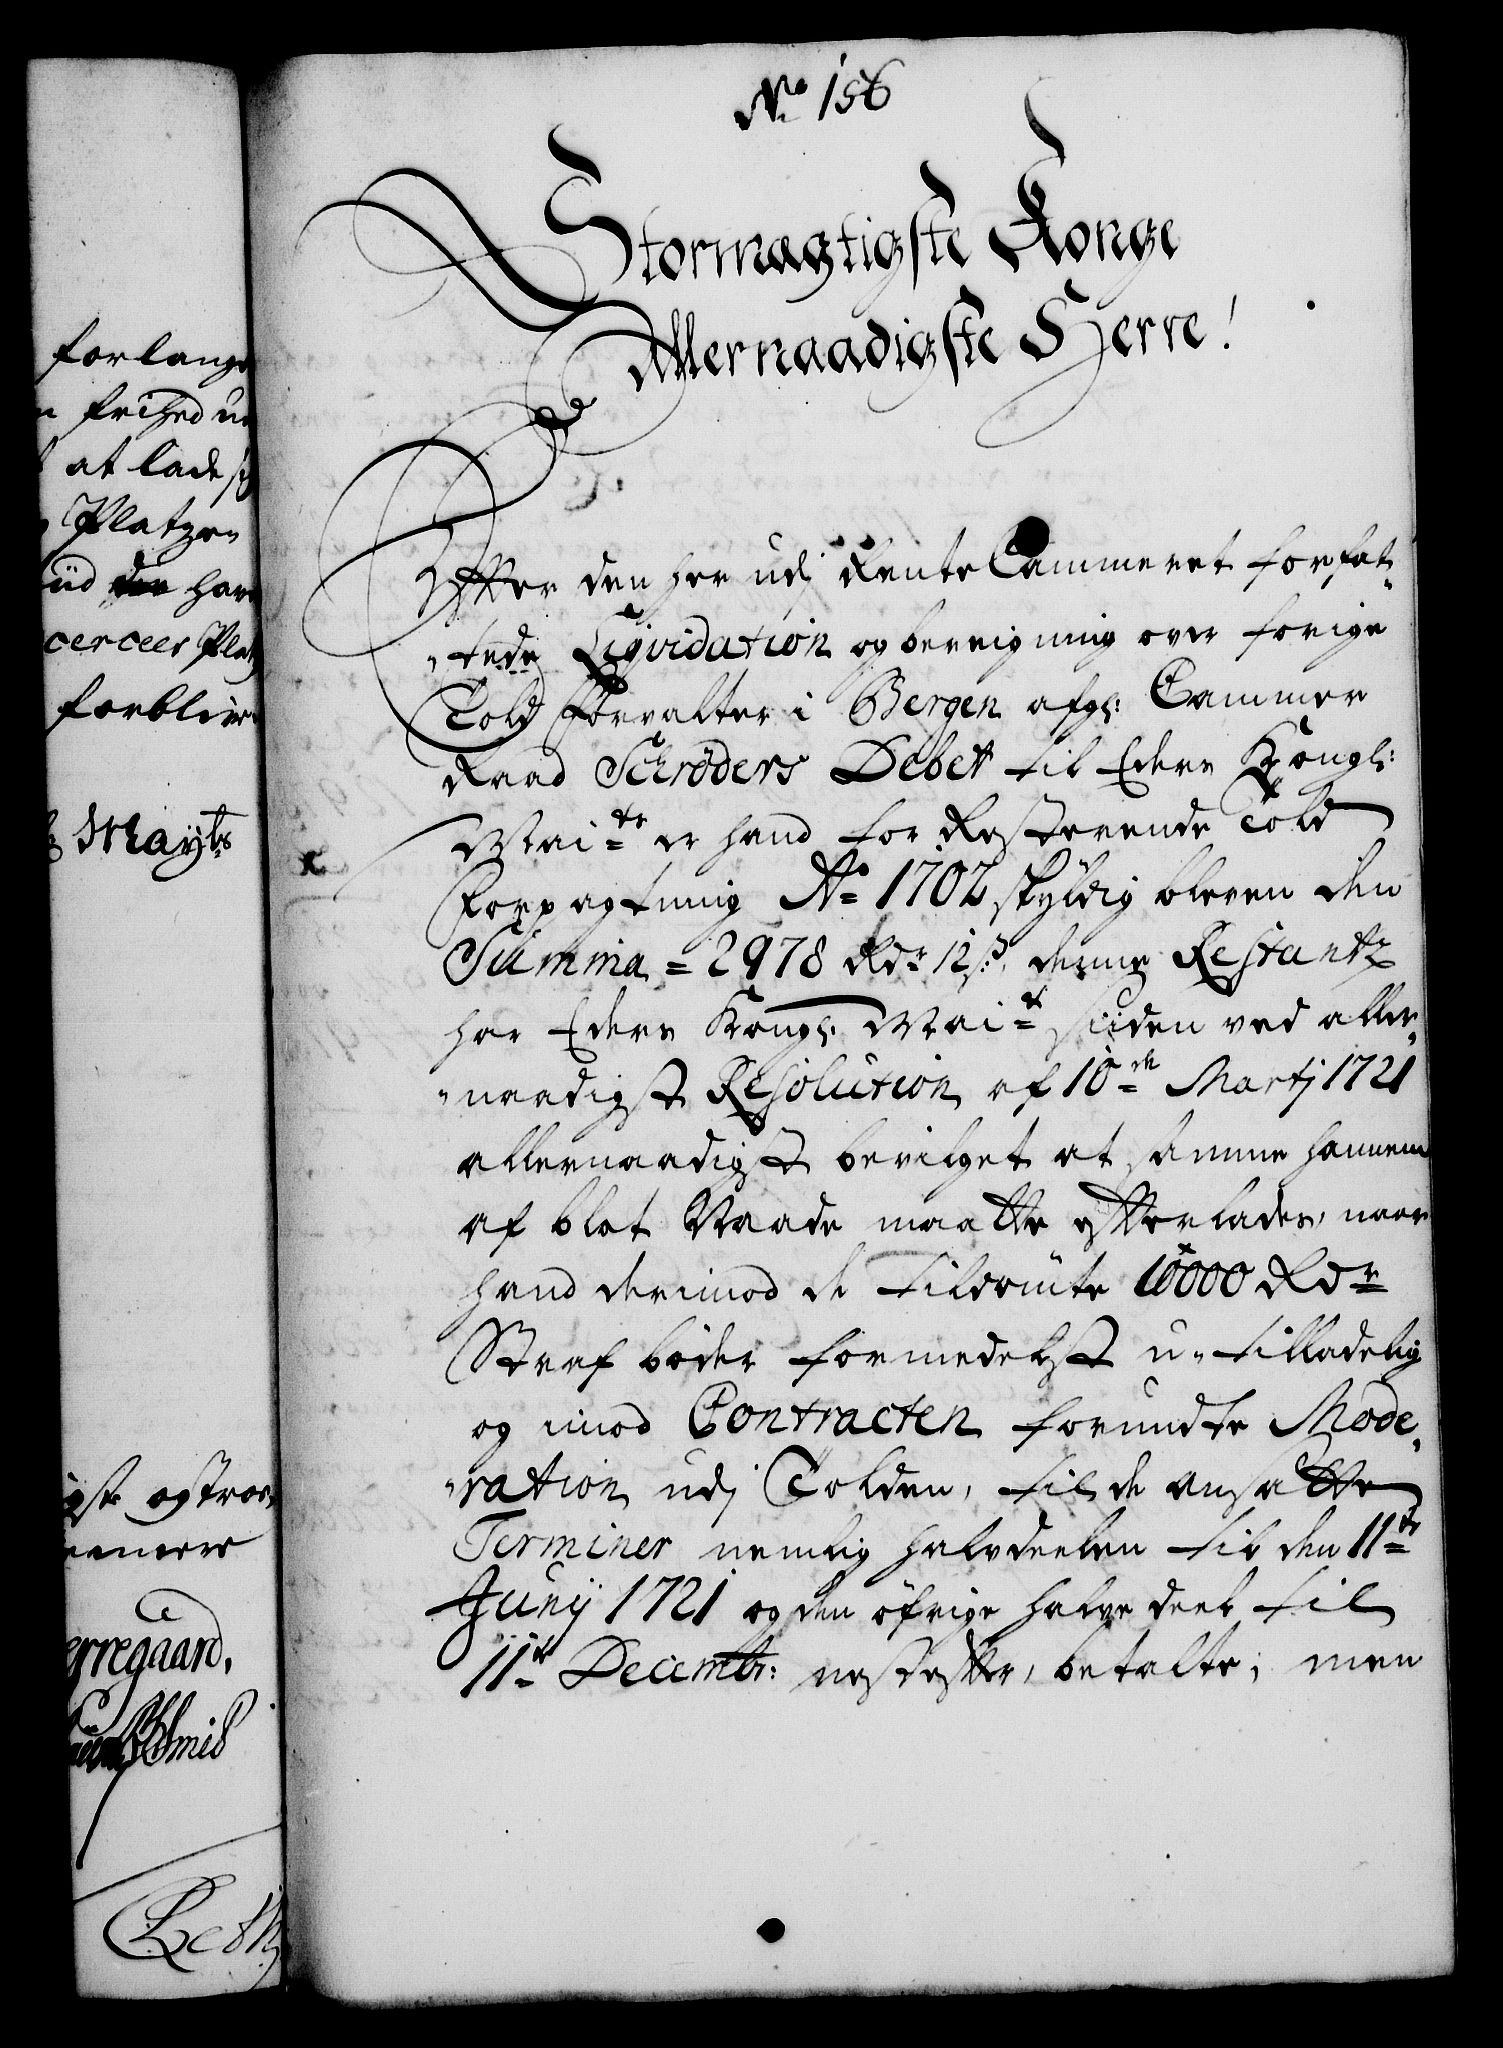 No 156
Stormægtigste Konge
Allernaadigste Herre!
Efter den her udj RenteCammeret forfat-
tede Liqvidation og beregning over forige
Told Forvalter i Bergen afg: Cammer
Raad Schrøders Debet til Eders Kongl:
Mait er hand for Resterende Told
Forpagtning Ao 1702 skyldig bleven den
Summa = 2978 Rdr 12 s, denne Restantz
har Eders Kongl: Mait siiden ved aller-
naadigst Resolution af 10de Martj 1721
allernaadigst bevilget at samme hannem
af blot Naade maatte efterlades, naar
hand derimod de tildømte 10000 Rdr
Straf bøder formedelst u-tilladelig
og imod Contracten forundte Mode-
ration udj Tolden, til de ansatte
Terminer nemlig halvdeelen til den 11te
Junij 1721 og den øfrige halve deel til
11te Decembr: nestefter, betalte; men
forlange
frihed
at lade
Platzen
der har
Platz
forblive
Mayts
og troe
Rett